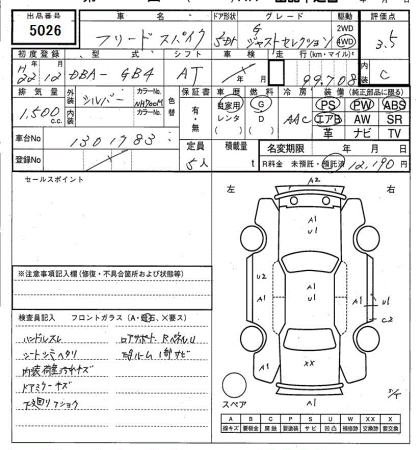 出品番号 車名 ドア形状 グレード 駆動 評価点
5026 フリードスパイク 5D G ジャストセレクション 2WD 4WD 3.5
初度登録 型式 シフト 車検 走行(km・マイル) 内装
22年12月 DBA-GB4 AT 年 月 99,708 C
排気量 外装 カラーNo. 色替 保証書 車歴 燃料 冷房 装備(純正部品に限る)
1,500 c.c. シルバー NH700M 有・無 自家用 レンタ G D AAC PS PW ABS
内装 カラーNo. エアB AW SR
革 ナビ TV
車台No 1301783 定員 積載量 名変期限 年 月 日
登録No 5人 t R料金 未預託・預託済 12,190円
セールスポイント
左 右
A2
A1
U1
U2
A1 A1 A1 U1
C2
XX
A1 A1
A1
スペア
※注意事項記入欄(修復・不具合箇所および状態等)
検査員記入 フロントガラス(A・飛石、×要ス)
ハンドルスレ
シートシミヘタリ
内装荷室汚れキズ
ドアミラーキズ
下廻りフショク
A B C P S U W XX X
線キズ 要板金 腐蝕 要塗装 サビ 凹凸 補修跡 交換跡 要交換